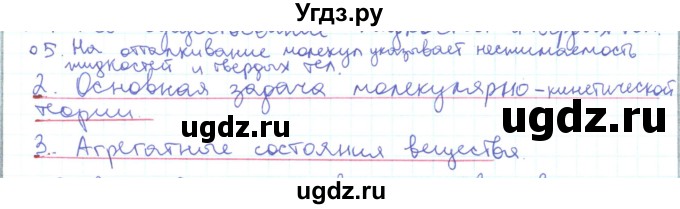 Угдз.ру
о5. На отталкивание молекул указывает несжимаемость
жидкостей и твердых тел.
2. Основная задача молекулярно-кинетической
теории
ugdz.ru ugdz.ru
3. Агрегатные состояния вещества.
ugdz.ru